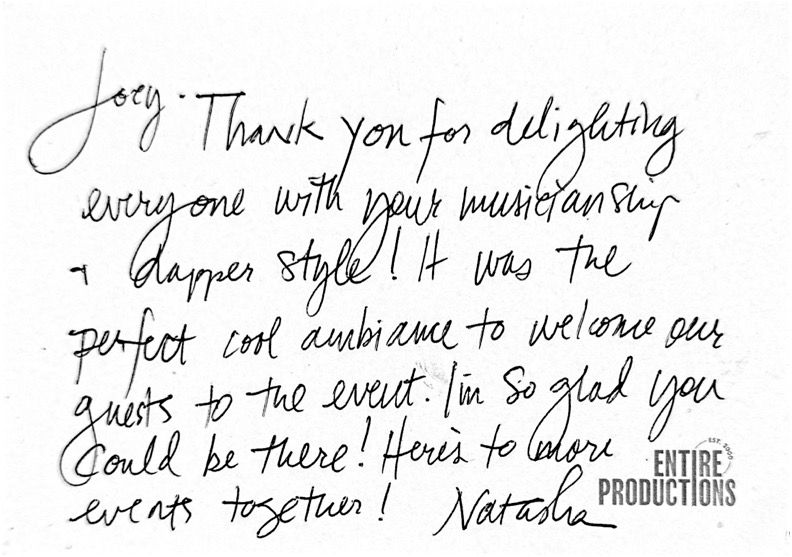 Joey. Thank you for delighting
everyone with your musicianship
+ dapper style! It was the
perfect cool ambiance to welcome our
guests to the event. I'm so glad you
could be there! Here's to more
events together! Natasha
EST. 2000
ENTIRE
PRODUCTIONS